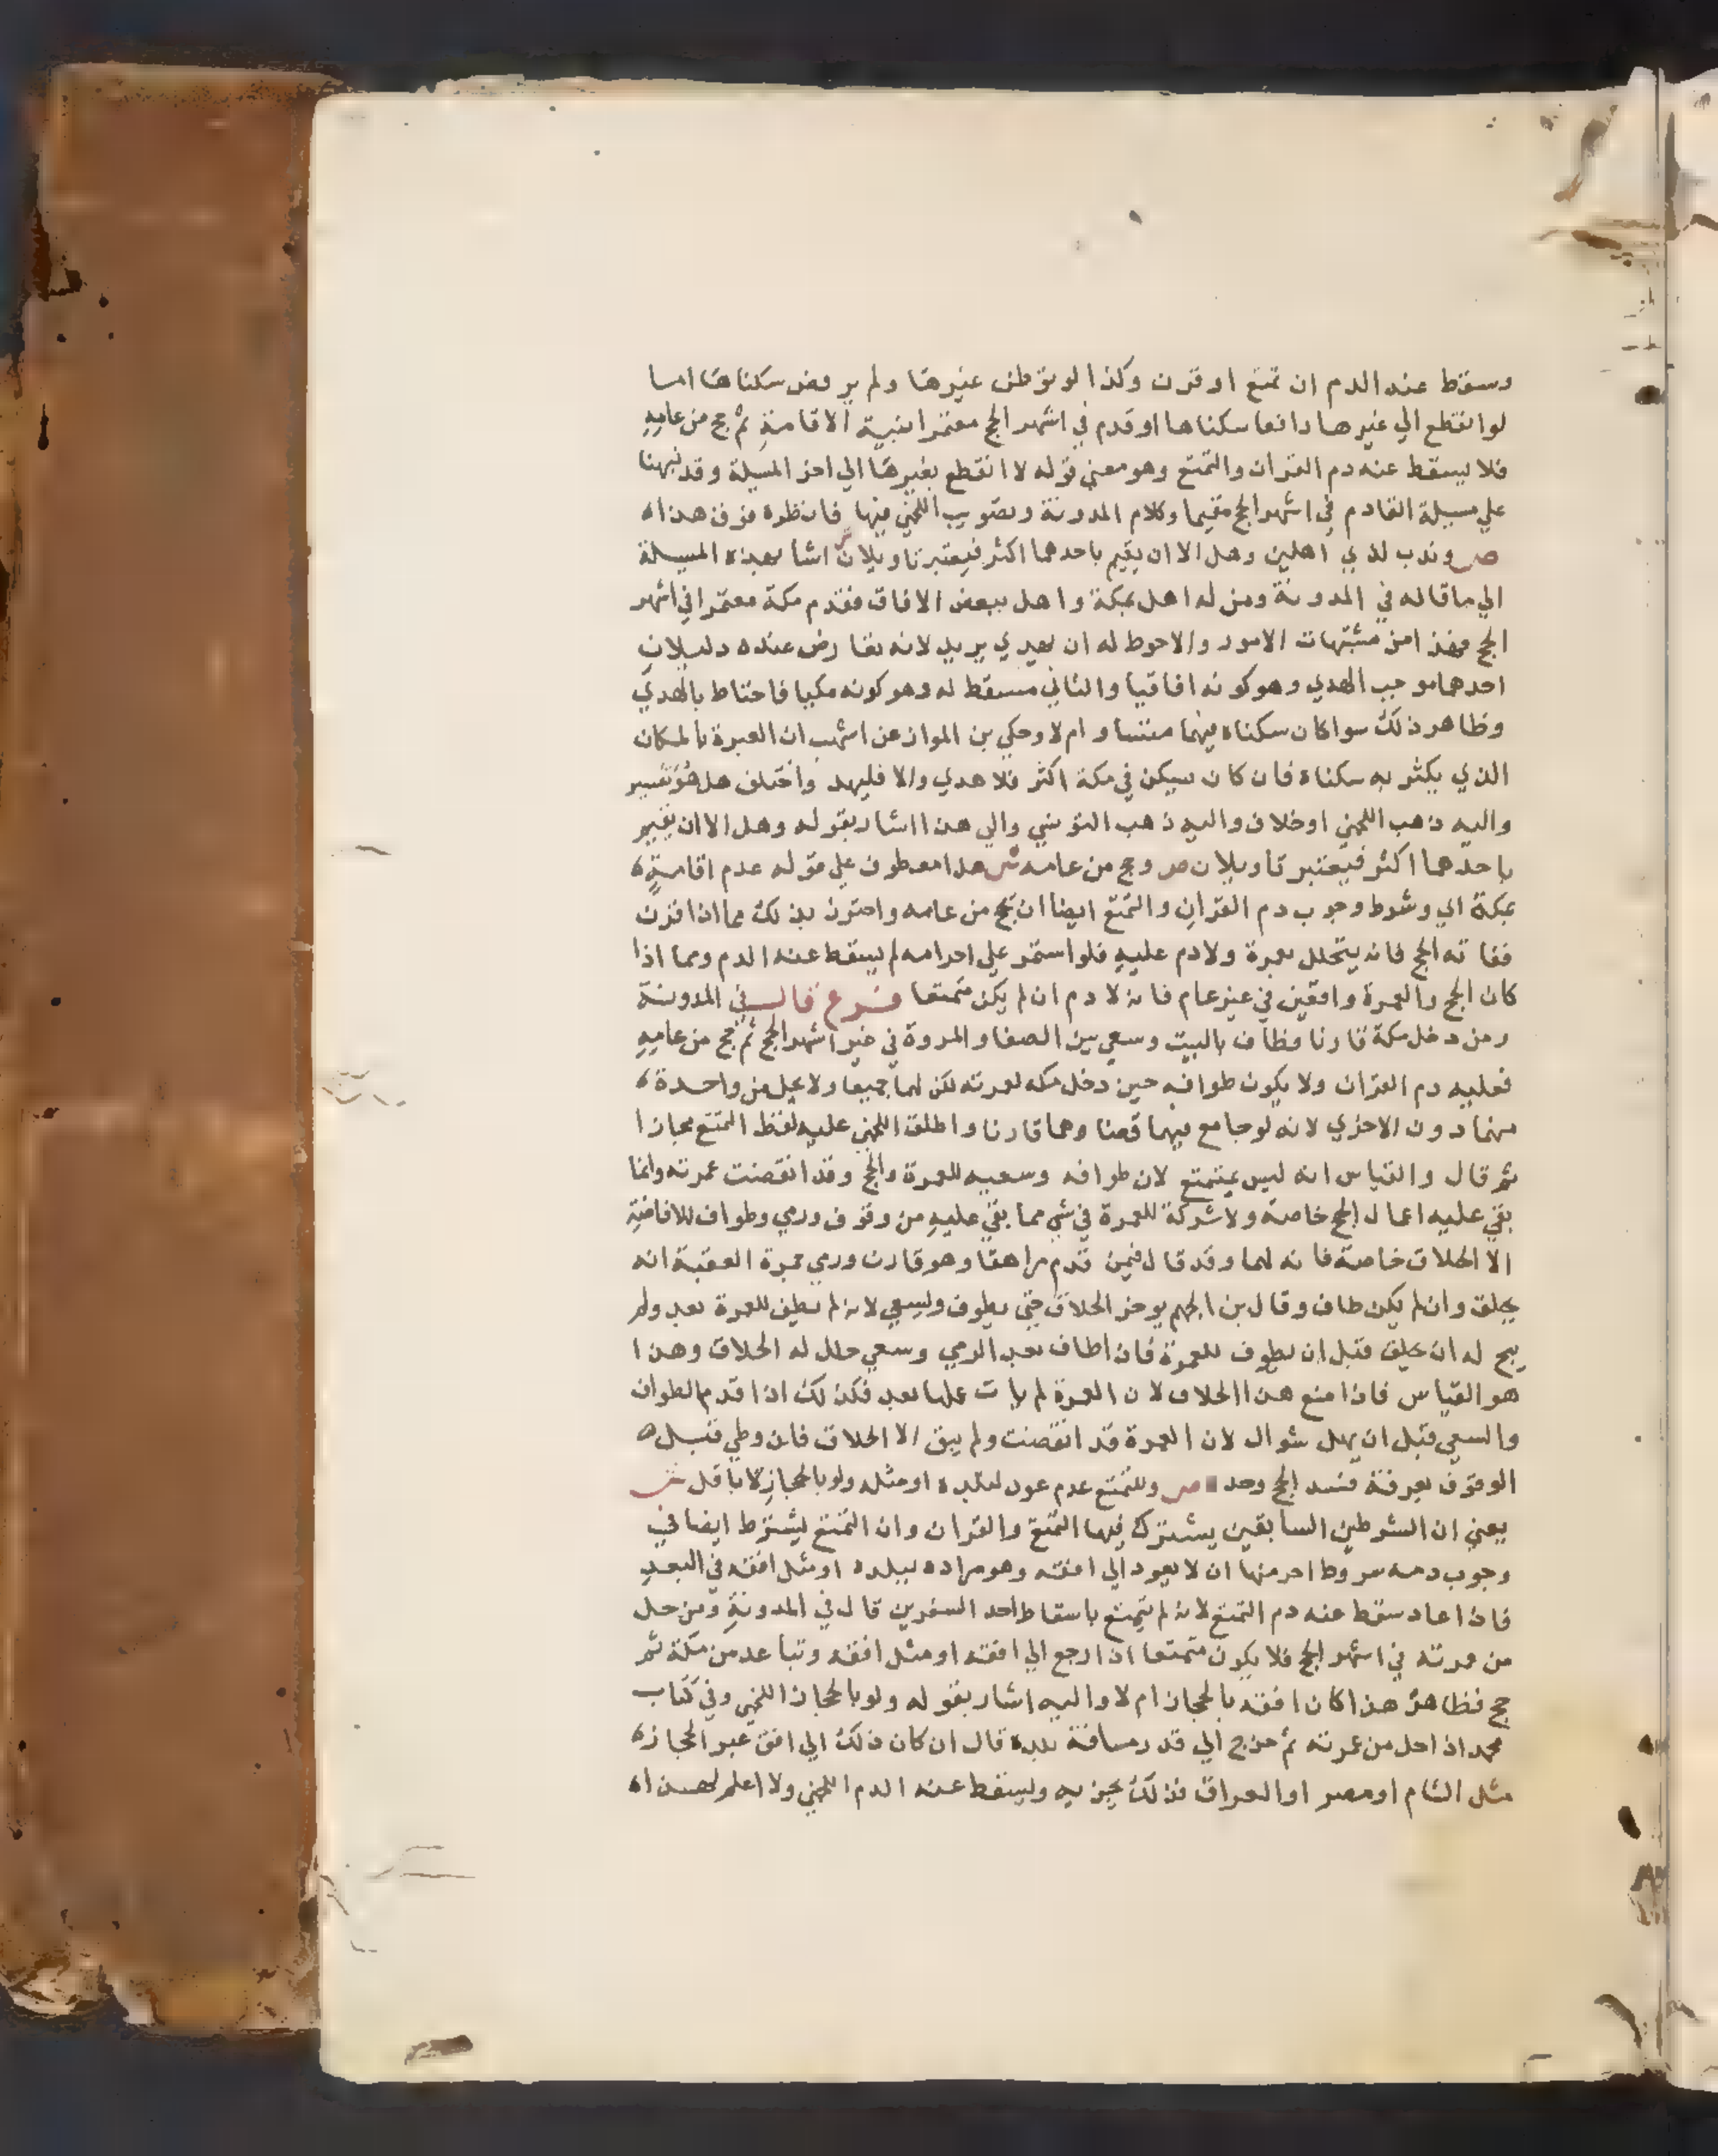 وسقط عنه الدم ان تمتع او قرن وكذا لو توطن غيرها ولم يرفض سكناها اما
لو انقطع الي غيرها رافعا سكناها او قدم في اشهر الحج معتمرا بنية الاقامة ثم حج من عامه
فلا يسقط عنه دم القران والتمتع وهو معني قوله لا انقطع بغيرها الي اخر المسيلة وقد نبهنا
علي مسيلة القادم في اشهر الحج مقيما وكلام المدونة وتصويب اللخمي فيها فانظره فوق هذا ه
ص وندب لذي اهلين وهل الا ان يقيم باحدهما اكثر فيعتبر تاويلان ش اشا بهذه المسيلة
الي ما قاله في المدونة ومن له اهل بمكة واهل ببعض الافاق فقدم مكة معتمرا في اشهر
الحج فهذا من مشتبهات الامور والاحوط له ان يهدي يريد لانه تعارض عنده دليلان
احدهما موجب الهدي وهو كونه افاقيا والثاني مسقط له وهو كونه مكيا فاحتاط بالهدي
وظاهر ذلك سوا كان سكناه فيهما متساو ام لا وحكي بن المواز عن اشهب ان العبرة بالمكان
الذي يكثر به سكناه فان كان سيكن في مكة اكثر فلا هدي والا فليهد واختلف هل هو تفسير
واليه ذهب اللخمي او خلاف واليه ذهب التونسي والي هذا اشار بقوله وهل الا ان يقيم
باحدهما اكثر فيعتبر تاويلان ص وحج من عامه ش هذا معطوف علي قوله عدم اقامته
بمكة اي وشرط وجوب دم القران والتمتع ايضا ان يحج من عامه واحترز بذلك مما اذا قرن
ففاته الحج فانه يتحلل بعمرة ولا دم عليه فلو استمر علي احرامه لم يسقط عنه الدم ومما اذا
كان الحج والعمرة واقعين في غير عام فانه لا دم ان لم يكن متمتعا فرع قال في المدونة
ومن دخل مكة قارنا فطاف بالبيت وسعي بين الصفا والمروة في غير اشهر الحج ثم حج من عامه
فعليه دم القران ولا يكون طوافه حين دخل مكه لعمرته لكن لهما جميعا ولا يحل من واحدة ه
منهما دون الاخري لانه لو جامع فيهما قضا وهما قارنا واطلق اللخمي عليه لفظ التمتع مجازا
ثم قال والقياس انه ليس بمتمتع لان طوافه وسعيه للعمرة والحج وقد انقضت عمرته وانما
بقي عليه اعمال الحج خاصة ولا شركة للعمرة في شي مما بقي عليه من وقوف ورمي وطواف للافاضة
الا الحلاق خاصة فانه لهما وقد قال فيمن قدم مراهقا وهو قارن ورمي جمرة العقبة انه
يحلق وان لم يكن طاف وقال بن الجهم يوخر الحلاق حتي يطوف ويسعي لانه لم يطف للعمرة بعد ولم
يبح له ان يحلق قبل ان يطوف للعمرة فاذا طاف بعد الرمي وسعي حل له الحلاق وهذا
هو القياس فاذا منع هذا الحلاق لان العمرة لم يات عملها بعد فكذلك اذا قدم الطواف
والسعي قبل ان يهل شوال لان العمرة قد انقضت ولم يبق الا الحلاق فان وطي قبل ه
الوقوف بعرفة فسد الحج وحد ه ص وللتمتع عدم عود لبلده او مثله ولو بالحجاز لا باقل ش
يعني ان الشرطين السابقين يشترك فيهما التمتع والقران وان التمتع يشترط ايضا في
وجوب دمه شروط اخر منها ان لا يعود الي افقه وهو مراده ببلده او مثل افقه في البعد
فاذا عاد سقط عنه دم التمتع لانه لم يتمتع باسقاط احد السفرين قال في المدونة ومن حل
من عمرته في اشهر الحج فلا يكون متمتعا اذا رجع الي افقه او مثل افقه وتباعد من مكة ثم
حج فظاهر هذا كان افقه بالحجاز ام لا واليه اشار بقوله ولو بالحجاز اللخمي وفي كتاب
محمد اذا حل من عمرته ثم خرج الي قدر مسافة بلده قال ان كان ذلك الي افق غير الحجاز ه
مثل الشام او مصر او العراق فذلك يجزيه ويسقط عنه الدم اللخمي ولا اعلم لهذا ه